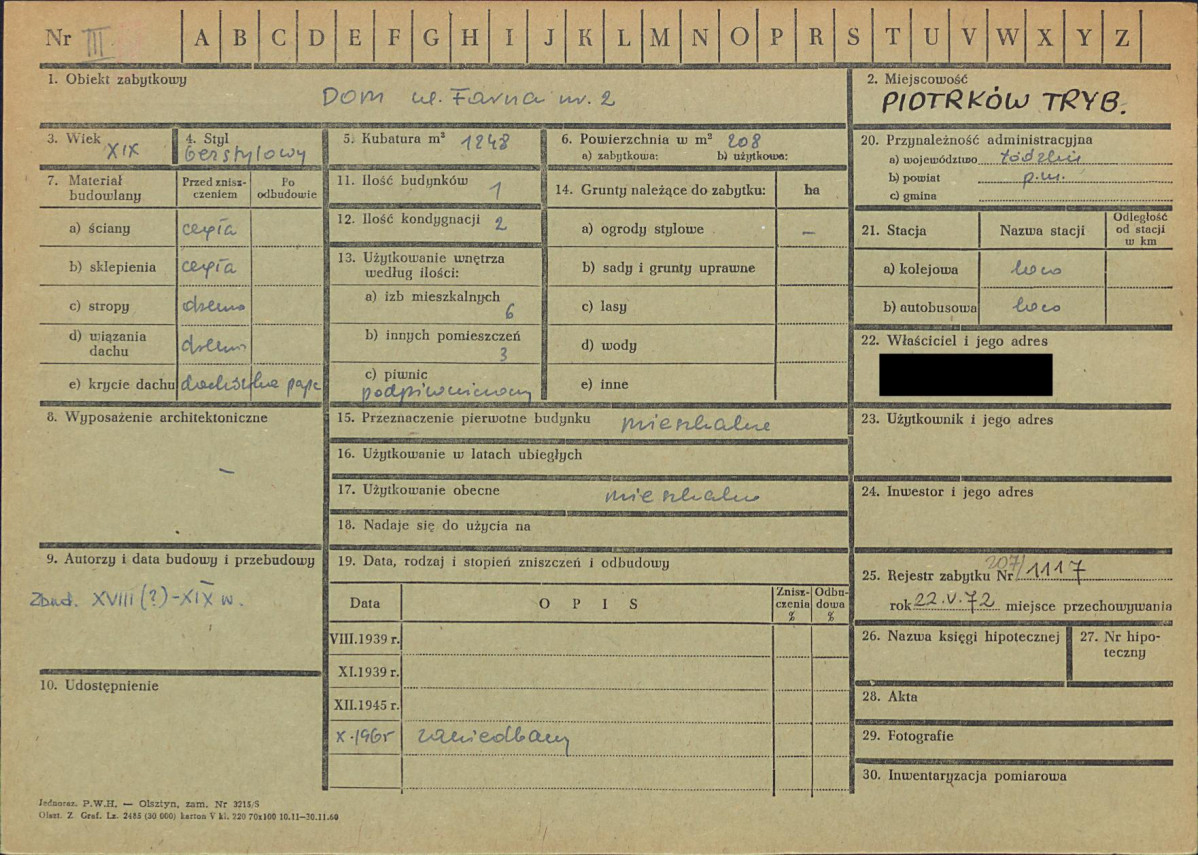 Nr III A B C D E F G H I J K L M N O P R S T U V W X Y Z
1. Obiekt zabytkowy
DOM ul. Farna nr. 2
2. Miejscowość
PIOTRKÓW TRYB.
3. Wiek
XIX
4. Styl
bezstylowy
5. Kubatura m³ 1248
6. Powierzchnia w m² 208
a) zabytkowa: b) użytkowa:
7. Materiał budowlany
Przed zniszczeniem
Po odbudowie
a) ściany cegła
b) sklepienia cegła
c) stropy drewno
d) wiązania dachu drewn
e) krycie dachu
8. Wyposażenie architektoniczne
–
9. Autorzy i data budowy i przebudowy
Zbud. XVIII (?) - XIX w.
10. Udostępnienie
11. Ilość budynków 1
12. Ilość kondygnacji 2
13. Użytkowanie wnętrza według ilości:
a) izb mieszkalnych
6
b) innych pomieszczeń
3
c) piwnic
podpiwniczony
14. Grunty należące do zabytku: ha
a) ogrody stylowe –
b) sady i grunty uprawne
c) lasy
d) wody
e) inne
15. Przeznaczenie pierwotne budynku mieszkalne
16. Użytkowanie w latach ubiegłych
17. Użytkowanie obecne mieszkalne
18. Nadaje się do użycia na
19. Data, rodzaj i stopień zniszczeń i odbudowy
Data OPIS Zniszczenia % Odbudowa %
VIII.1939 r.
XI.1939 r.
XII.1945 r.
X.1965 zaniedbany
20. Przynależność administracyjna
a) województwo łódzkie
b) powiat p.m.
c) gmina
21. Stacja Nazwa stacji Odległość od stacji w km
a) kolejowa loco
b) autobusowa loco
22. Właściciel i jego adres
23. Użytkownik i jego adres
24. Inwestor i jego adres
25. Rejestr zabytku Nr 207/1117
rok 22.V.72 miejsce przechowywania
26. Nazwa księgi hipotecznej
27. Nr hipoteczny
28. Akta
29. Fotografie
30. Inwentaryzacja pomiarowa
Jednoraz. P.W.H. — Olsztyn, zam. Nr 3215/S
Olszt. Z. Graf. Lz. 2485 (30 000) karton V kl. 220 70x100 10.11—30.11.60